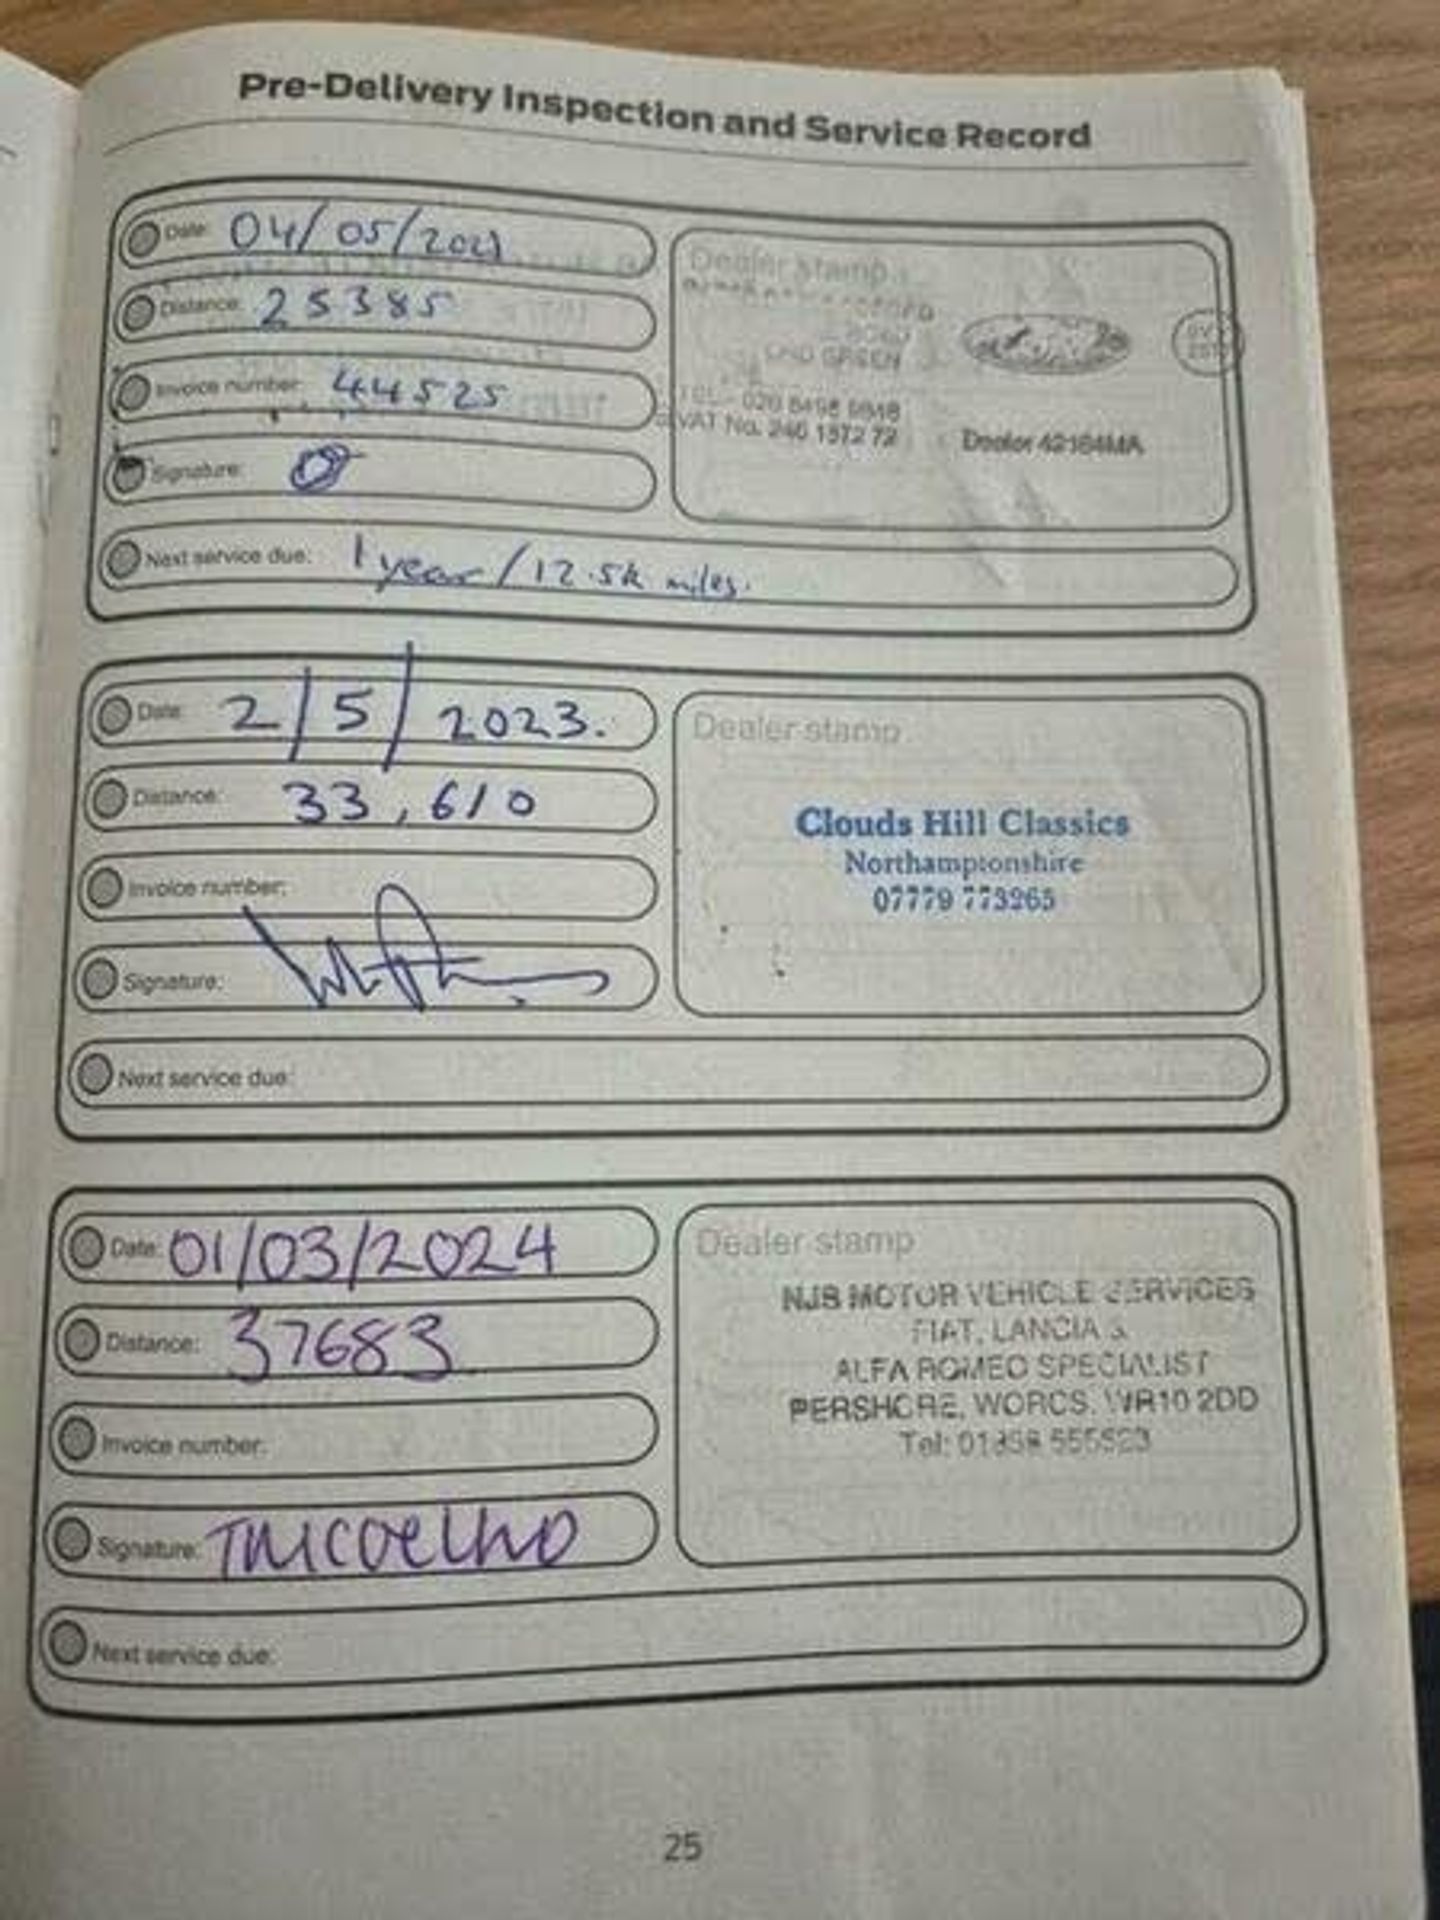 Pre-Delivery Inspection and Service Record
Date: 04/05/2021
Distance: 25385
Invoice number: 44525
Signature:
Next service due: 1 year / 12.5k miles.
Dealer stamp
END GREEN
TEL: 020 8498 8848
VAT No. 246 1572 72
Dealer 42184MA
Date: 2/5/2023.
Distance: 33,610
Invoice number:
Signature:
Next service due:
Dealer stamp
Clouds Hill Classics
Northamptonshire
07779 773265
Date: 01/03/2024
Distance: 37683
Invoice number:
Signature: TMCOELHO
Next service due:
Dealer stamp
NJB MOTOR VEHICLE SERVICES
FIAT, LANCIA &
ALFA ROMEO SPECIALIST
PERSHORE, WORCS. WR10 2DD
Tel:
25